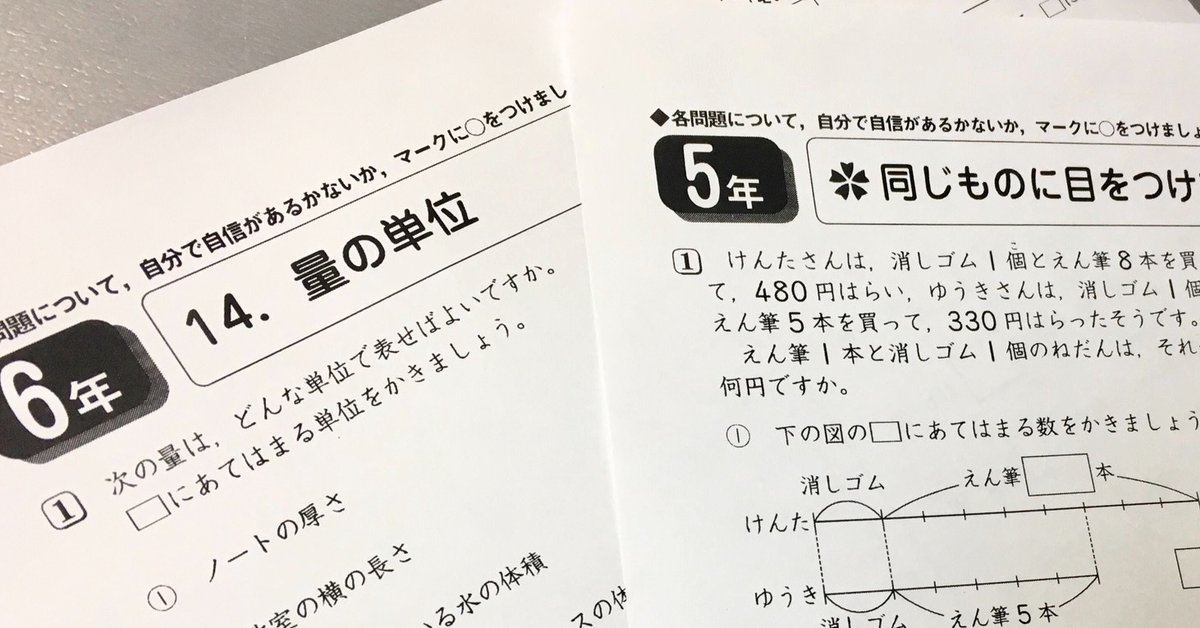 問題について，自分で自信があるかないか，マークに○をつけまし
6年
14. 量の単位
1 次の量は，どんな単位で表せばよいですか。
□にあてはまる単位をかきましょう。
① ノートの厚さ
室の横の長さ
いる水の体積
スの体
◆各問題について，自分で自信があるかないか，マークに○をつけましょ
5年
同じものに目をつけ
1 けんたさんは，消しゴム1個とえん筆8本を買
こ
て，480円はらい，ゆうきさんは，消しゴム1個
えん筆5本を買って，330円はらったそうです。
えん筆1本と消しゴム1個のねだんは，それ
何円ですか。
① 下の図の□にあてはまる数をかきましょう
消しゴム えん筆□本
けんた
ゆうき
消しゴム えん筆5本